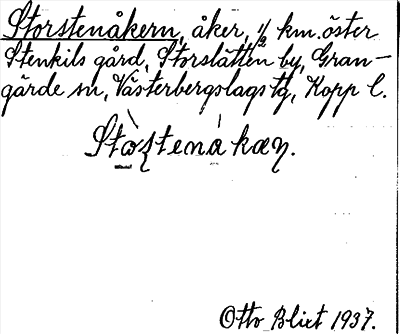 Storstenåkern, åker, 1/2 km. öster
Stenkils gård, Storslätten by, Gran-
gärde sn, Västerbergslags tg, Kopp l.
Otto Blixt 1937.